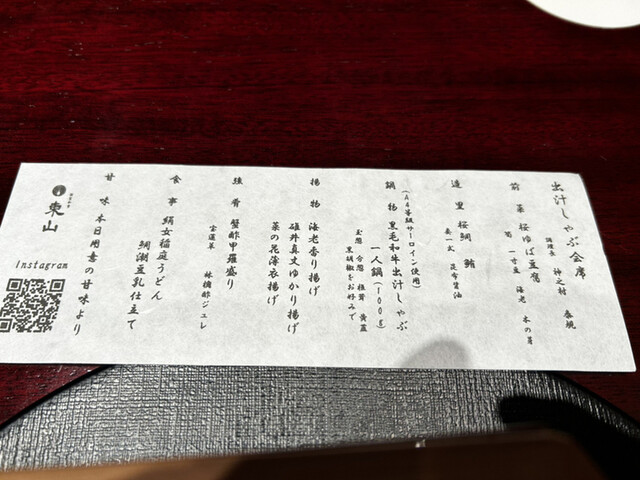 出汁しゃぶ会席
調理長 神之村 泰規
前菜 桜ゆば豆腐
蜀 一寸豆 海老 木の芽
造里 桜鯛 鮪
妻一式 昆布醤油
鍋物 黒毛和牛出汁しゃぶ
一人鍋(100g)
(A4等級サーロイン使用)
玉葱 分葱 椎茸 黄韮
黒胡椒をお好みで
揚物 海老香り揚げ
碓井真丈ゆかり揚げ
菜の花薄衣揚げ
強肴 蟹酢甲羅盛り
宝蓮草 林檎酢ジュレ
食事 絹女稲庭うどん
鯛潮豆乳仕立て
甘味 本日用意の甘味より
東山
Instagram